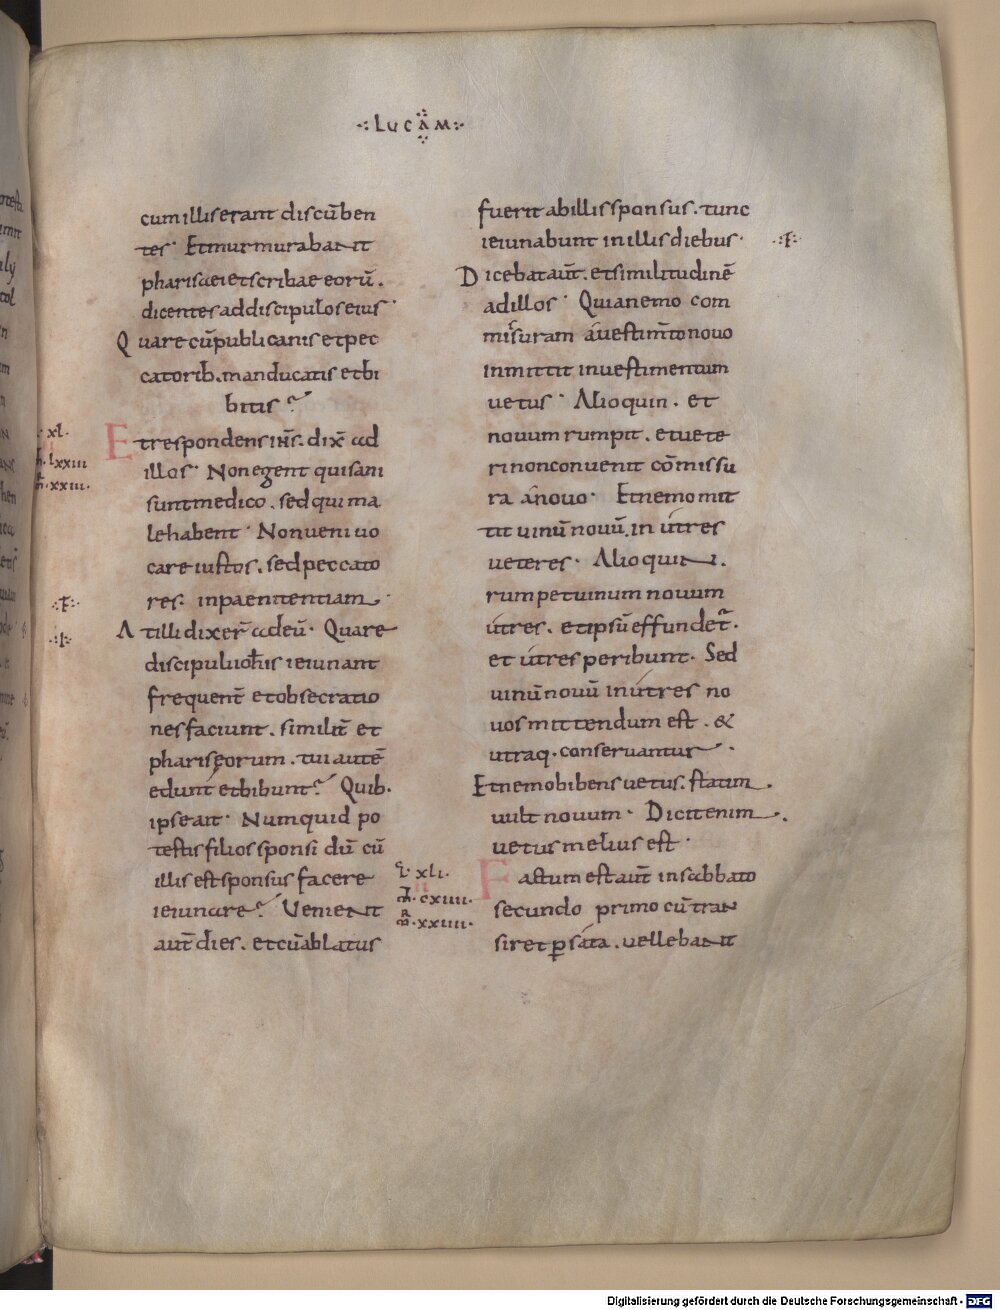 LUCAM
cum illis erant discūben
tes· Et murmurabant
pharisaei et scribae eorū.
dicentes ad discipulos eius·
Quare cū publicanis et pec
catorib. manducatis et bi
bitis?
Et respondens ihs̄. dix̄ ad
illos· Non egent qui sani
sunt medico. sed qui ma
le habent· Non veni uo
care iustos. sed peccato
res. in paenitentiam.
At illi dixer̄ ad eū· Quare
discipuli ioh̄is ieiunant
frequent̄ et obsecratio
nes faciunt. similit̄ et
phariseorum. tui autē
edunt et bibunt? Quib.
ipse ait· Numquid po
testis filios sponsi dū cū
illis est sponsus facere
ieiunare? Venient
aut̄ dies. et cū ablatus
xl.
lxxiii
xxiii.
fuerit ab illis sponsus. tunc
ieiunabunt in illis diebus·
Dicebat aut̄. et similitudinē
ad illos· Quia nemo com
misuram a vestim̄to novo
inmittit in vestimentum
uetus· Alioquin. et
novum rumpit. et uete
ri non conuenit cōmissu
ra a novo· Et nemo mit
tit uinū novū. in utres
ueteres· Alioquin.
rumpet uinum novum
utres. et ipsū effundet̄.
et utres peribunt. Sed
uinū novū in utres no
vos mittendum est. &
utraq. conservantur.
Et nemo bibens uetus. statim.
uult novum· Dicit enim.
uetus melius est·
Factum est aut̄ in sabbato
secundo primo cū tran
siret p̱ sata. vellebant
xli.
cxiiii.
xxiiii.
Digitalisierung gefördert durch die Deutsche Forschungsgemeinschaft - DFG